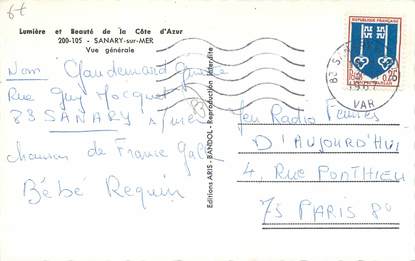 6t
Lumière et Beauté de la Côte d'Azur
200-105 - SANARY-sur-MER
Vue générale
Nom Gaudemard
Rue Guy Mocquet
83 SANARY s/mer
chanson de France Gall
Bébé Requin
Editions ARIS - BANDOL - Reproduction interdite
REPUBLIQUE FRANCAISE
0,25
83
1967
VAR
Jeu Radio Femmes
D'AUJOURD'HUI
4 RUE PONTHIEU
75 PARIS 8e